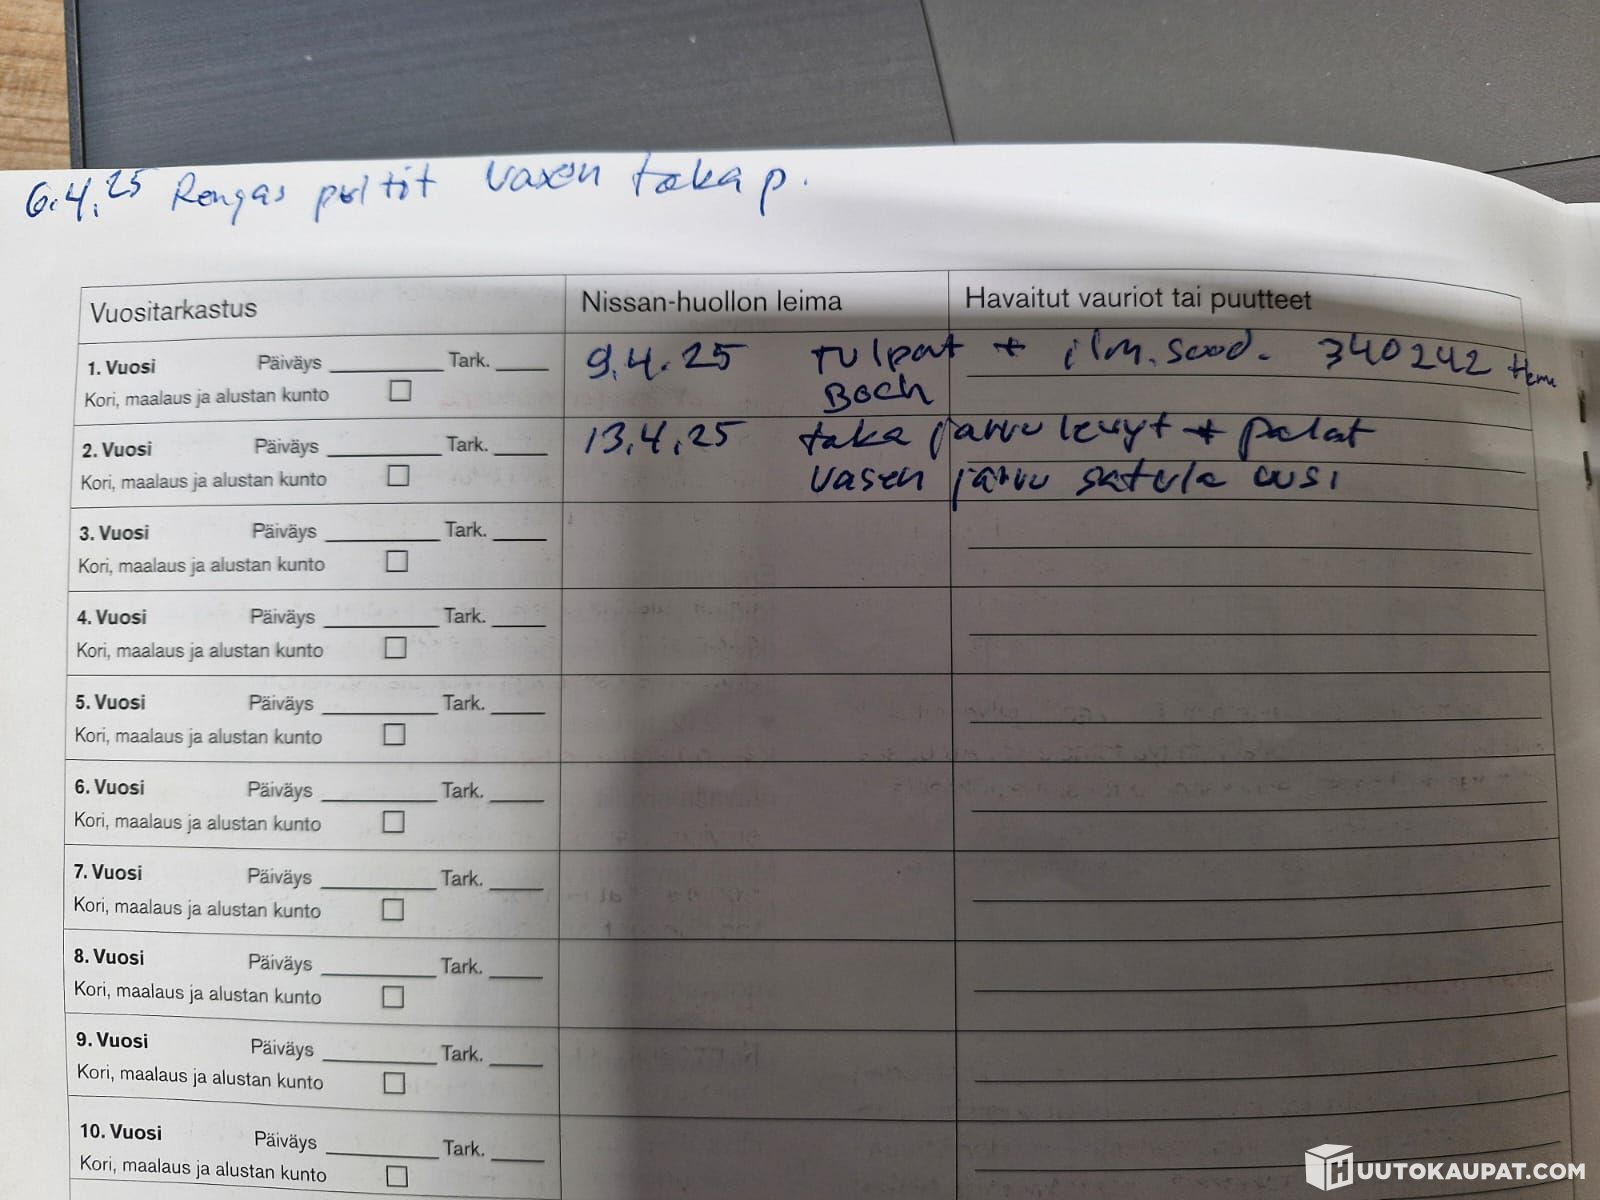 6.4.25 Rengas pultit vasen taka p.
Vuositarkastus Nissan-huollon leima Havaitut vauriot tai puutteet
1. Vuosi Päiväys Tark. 9.4.25 TULpat + ilm.suod. 340242
Kori, maalaus ja alustan kunto BOCH
2. Vuosi Päiväys Tark. 13.4.25 taka jarru levyt + palat
Kori, maalaus ja alustan kunto vasen jarru satula uusi
3. Vuosi Päiväys Tark.
Kori, maalaus ja alustan kunto
4. Vuosi Päiväys Tark.
Kori, maalaus ja alustan kunto
5. Vuosi Päiväys Tark.
Kori, maalaus ja alustan kunto
6. Vuosi Päiväys Tark.
Kori, maalaus ja alustan kunto
7. Vuosi Päiväys Tark.
Kori, maalaus ja alustan kunto
8. Vuosi Päiväys Tark.
Kori, maalaus ja alustan kunto
9. Vuosi Päiväys Tark.
Kori, maalaus ja alustan kunto
10. Vuosi Päiväys Tark.
Kori, maalaus ja alustan kunto
HUUTOKAUPAT.COM